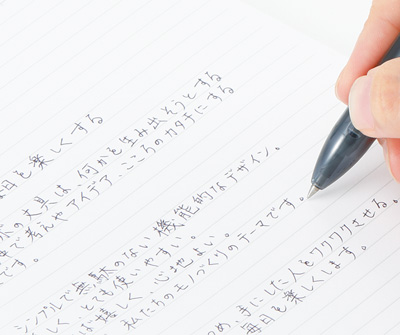 毎日を楽しくする
文具は、何かを生み出そうとする
考えやアイデア、こころのカタチにする
です。
シンプルで無駄のない機能的なデザイン。
しく、とても使いやすい。
楽しく、心地よい。
私たちのモノづくりのテーマです。
手にした人をワクワクさせる。
毎日を楽しくします。